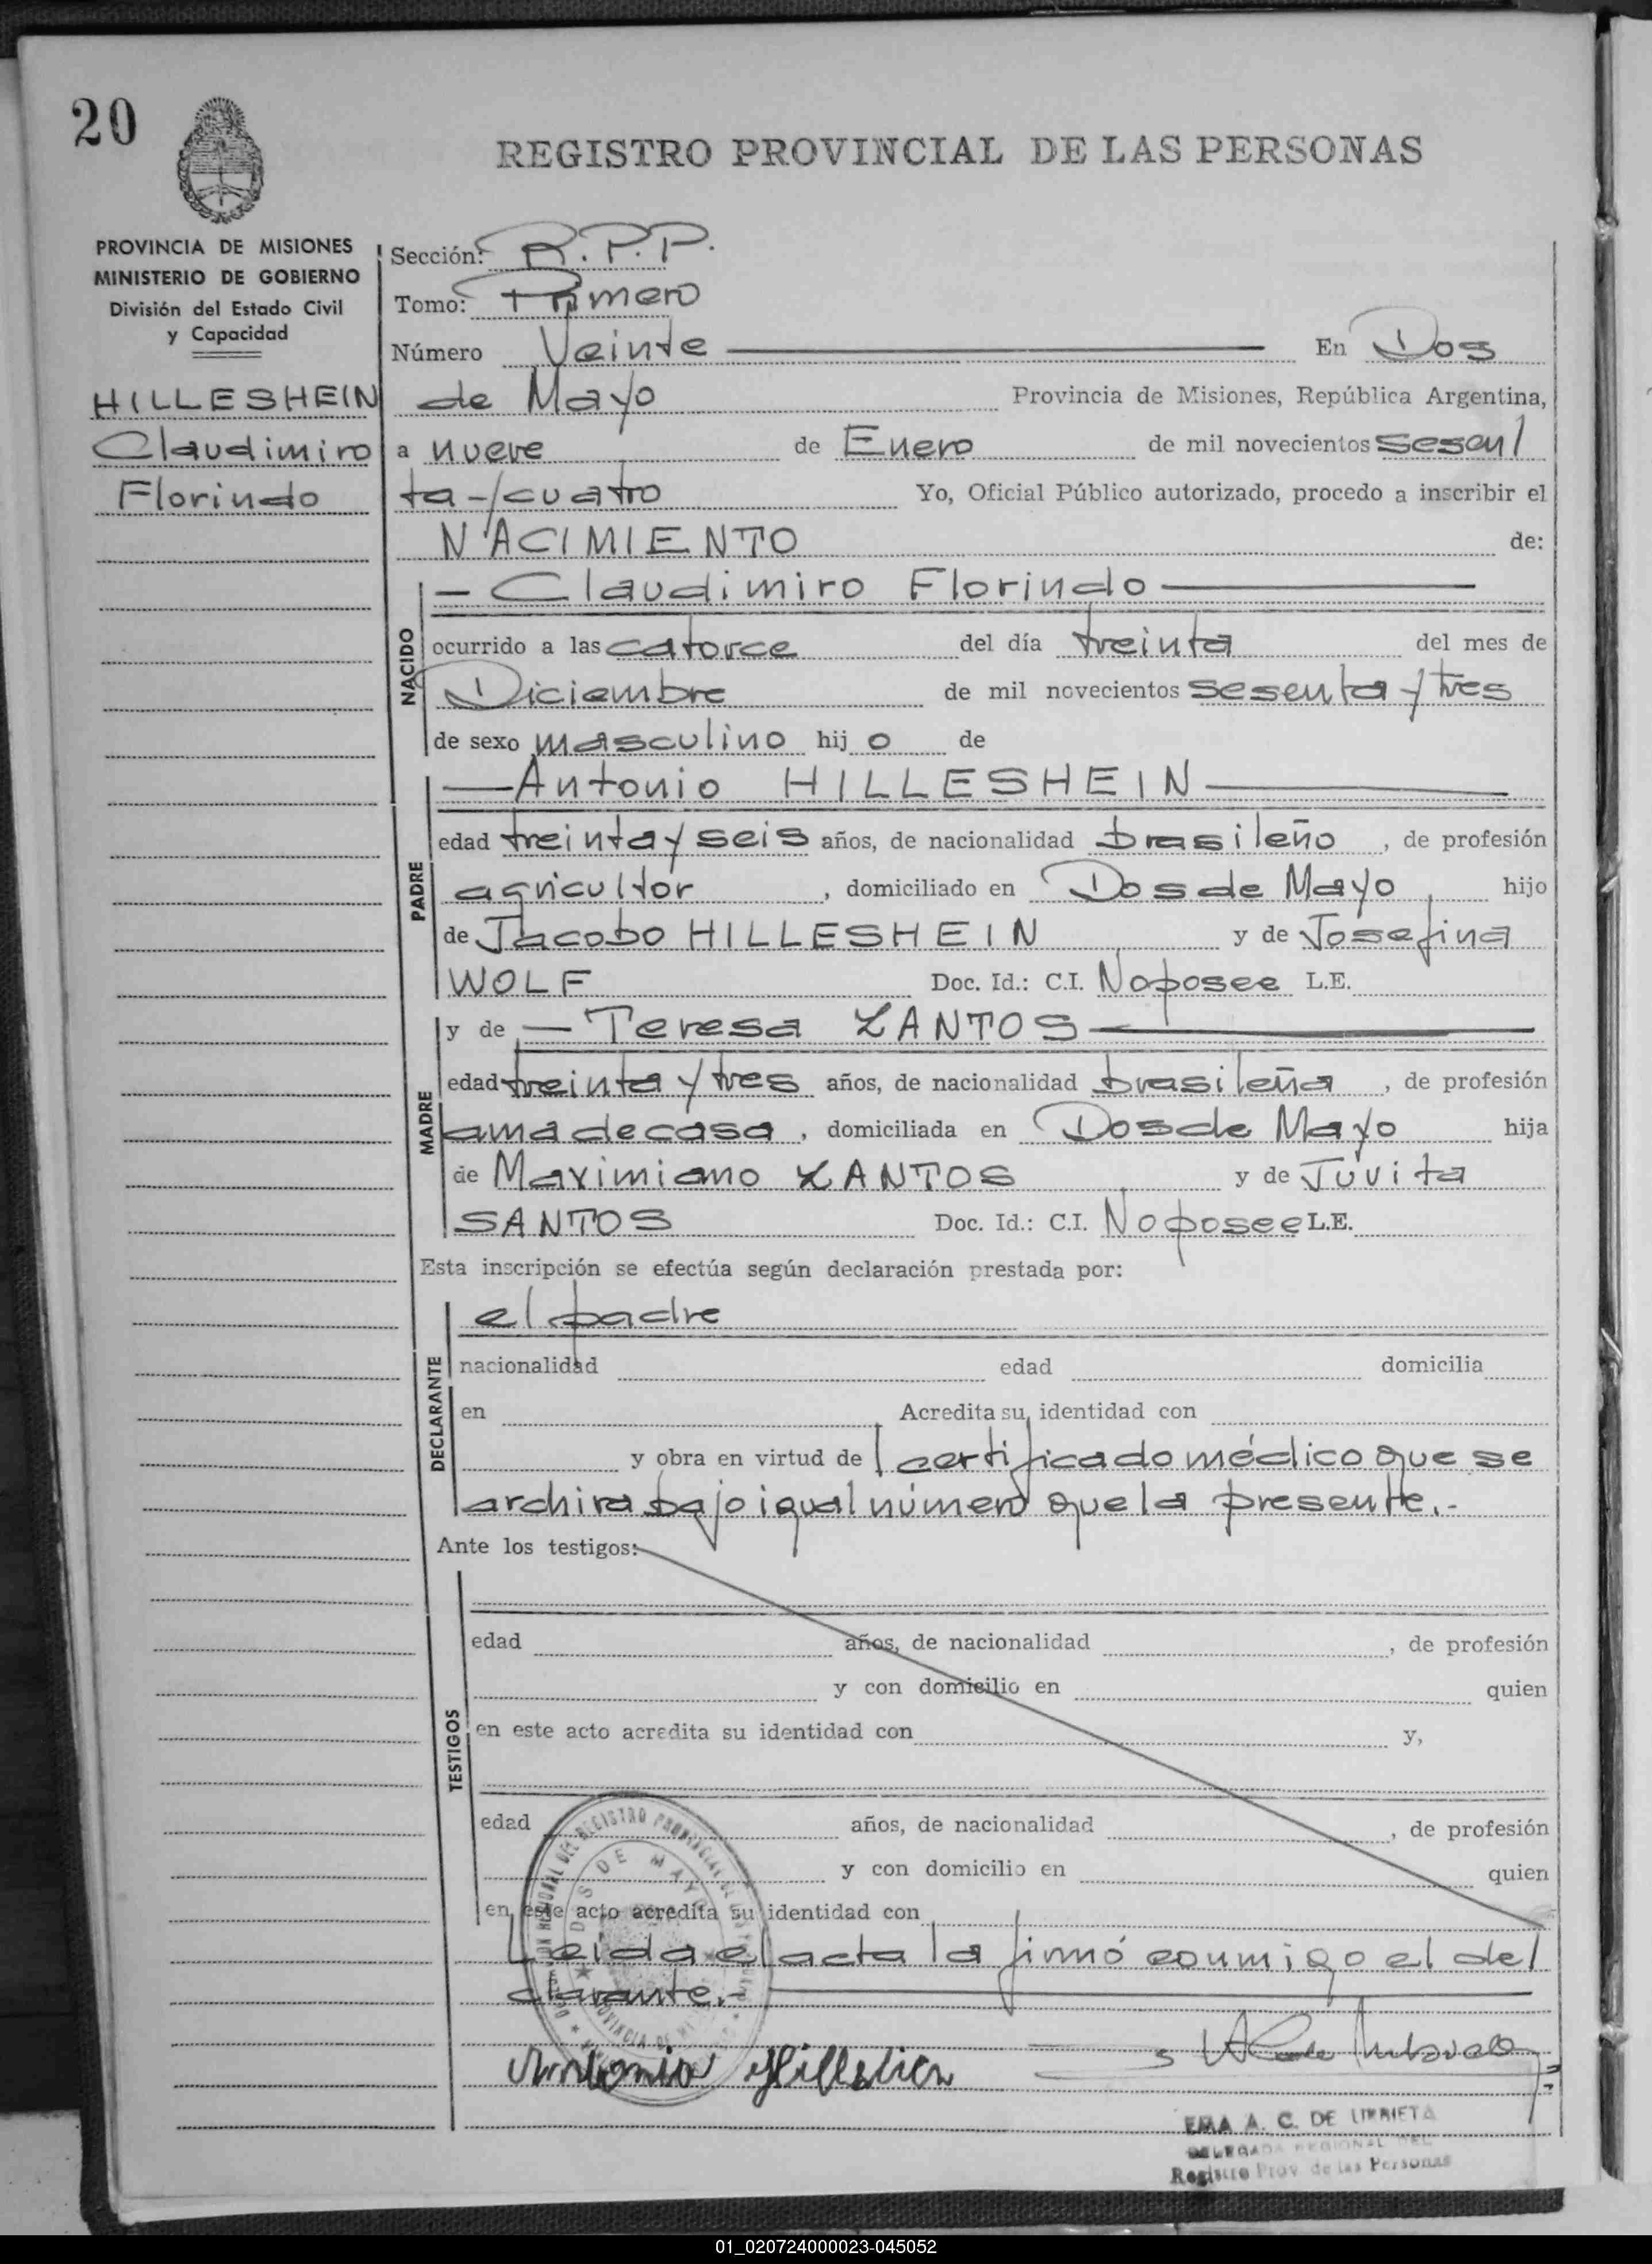 20
REGISTRO PROVINCIAL DE LAS PERSONAS
PROVINCIA DE MISIONES
MINISTERIO DE GOBIERNO
División del Estado Civil
y Capacidad
HILLESHEIN
Claudimiro
Florindo
Sección: R.P.P.
Tomo: Primero
Número Veinte En Dos
de Mayo Provincia de Misiones, República Argentina,
a nueve de Enero de mil novecientos sesen/
ta y cuatro Yo, Oficial Público autorizado, procedo a inscribir el
NACIMIENTO de:
NACIDO
— Claudimiro Florindo —
ocurrido a las catorce del día treinta del mes de
Diciembre de mil novecientos sesenta y tres
de sexo masculino hij o de
PADRE
— Antonio HILLESHEIN —
edad treinta y seis años, de nacionalidad brasileño, de profesión
agricultor, domiciliado en Dos de Mayo hijo
de Jacobo HILLESHEIN y de Josefina
WOLF Doc. Id.: C.I. No posee L.E.
MADRE
y de — Teresa ZANTOS —
edad treinta y tres años, de nacionalidad brasileña, de profesión
ama de casa, domiciliada en Dos de Mayo hija
de Maximiano ZANTOS y de Juvita
SANTOS Doc. Id.: C.I. No posee L.E.
Esta inscripción se efectúa según declaración prestada por:
DECLARANTE
el padre
nacionalidad edad domicilia
en Acredita su identidad con
y obra en virtud de certificado médico que se
archiva bajo igual número que la presente.-
Ante los testigos:
TESTIGOS
edad años, de nacionalidad , de profesión
y con domicilio en quien
en este acto acredita su identidad con y,
edad años, de nacionalidad , de profesión
y con domicilio en quien
en este acto acredita su identidad con
Leída el acta la firmó conmigo el de/
clarante.-
DOS DE MAYO
Antonio
EMA A. C. DE URRIETA
DELEGADA REGIONAL DEL
Registro Prov. de las Personas
01_020724000023-045052